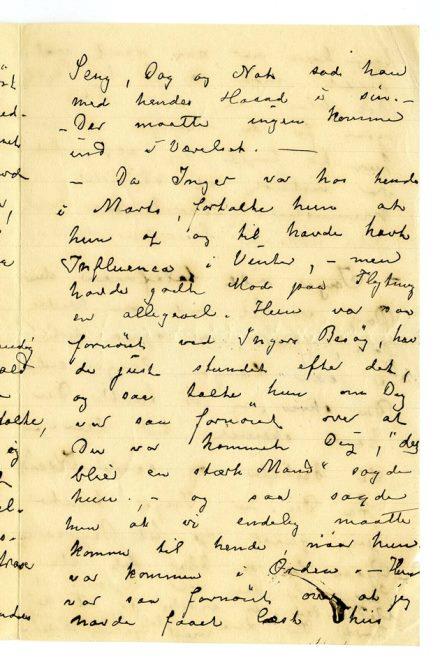 Seng, Dag og Nat sad han
med hendes Haand i sin. -
- Der maatte ingen komme
ind i Værelset. -
- Da Inger var hos hende
i Marts, fortalte hun at
hun af og til havde havt
Influenca i Vinter, - men
havde godt Mod paa Flytning
en allegavel. Hun var saa
fornöiet ved Ingers Besög, hav
de just stundet efter det,
og saa talte hun om Dig
var saa fornöiet over at
Du var kommet Dig, "du
blir en stærk Mand" sagde
hun. - og saa sagde
hun at vi endelig maatte
komme til hende, naar hun
var kommen i Orden. - Hun
var saa fornöiet over at jeg
havde faaet læst Thiis